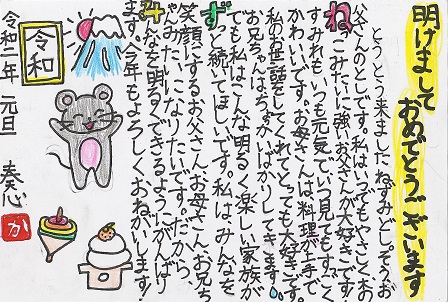 明けまして
おめでとうございます
とうとう来ましたねずみどし。そうお
父さんのとしです。私はいつでもやさしく、お
ねっこみたいに強いお父さんが大好きです。
すみれも、いつも元気でいつ見てもすっごく
かわいいです。お母さんは料理が上手で
私のお世話をしてくれてとっても大好きです。
お兄ちゃんは、ちょっかいばかりしてきます。
でも私はこんな明るく楽しい家族が
ずっと続いてほしいです。私は、みんなを
笑顔にするお父さん、お母さん、お兄ち
ゃんみたいになりたいです。だから、
みんなを明るくできるようにがんばり
ます。今年もよろしくおねがいします!
令和
令和二年 元旦 奏心
か